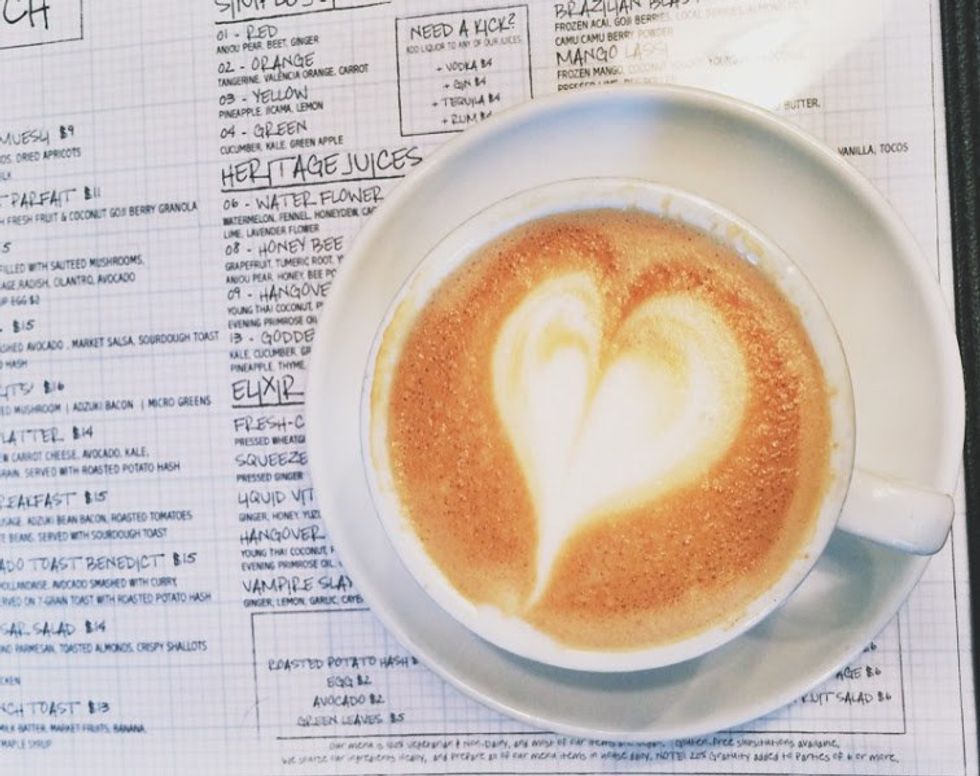 CH
MUESLI $9
DRIED APRICOTS
PARFAIT $11
FRESH FRUIT & COCONUT GOJI BERRY GRANOLA
FILLED WITH SAUTEED MUSHROOMS,
RADISH, CILANTRO, AVOCADO
EGG $2
$15
AVOCADO, MARKET SALSA, SOURDOUGH TOAST
HASH
$16
MUSHROOM | ADZUKI BACON | MICRO GREENS
LATTER $14
CARROT CHEESE, AVOCADO, KALE,
SERVED WITH ROASTED POTATO HASH
REAKFAST $15
ADZUKI BEAN BACON, ROASTED TOMATOES
BEANS, SERVED WITH SOURDOUGH TOAST
ADO TOAST BENEDICT $15
HOLLANDAISE, AVOCADO SMASHED WITH CURRY
ON 7-GRAIN TOAST WITH ROASTED POTATO HASH
SAR SALAD $14
PARMESAN, TOASTED ALMONDS, CRISPY SHALLOTS
NCH TOAST $13
BATTER, MARKET FRUITS, BANANA,
MAPLE SYRUP
01 - RED
ANJOU PEAR, BEET, GINGER
02 - ORANGE
TANGERINE, VALENCIA ORANGE, CARROT
03 - YELLOW
PINEAPPLE, JICAMA, LEMON
04 - GREEN
CUCUMBER, KALE, GREEN APPLE
HERITAGE JUICES
06 - WATER FLOWER
WATERMELON, FENNEL, HONEYDEW,
LIME, LAVENDER FLOWER
08 - HONEY BEE
GRAPEFRUIT, TUMERIC ROOT,
ANJOU PEAR, HONEY, BEE
09 - HANGOVE
YOUNG THAI COCONUT,
EVENING PRIMROSE OIL
13 - GODDE
KALE, CUCUMBER,
PINEAPPLE, THYME,
ELIXIR
FRESH-C
PRESSED WHEATG
SQUEEZE
PRESSED GINGER
LIQUID VIT
GINGER, HONEY,
HANGOVER
YOUNG THAI COCONUT,
EVENING PRIMROSE OIL,
VAMPIRE SLAY
GINGER, LEMON, GARLIC, CAYE
NEED A KICK?
ADD LIQUOR TO ANY OF OUR JUICES
+ VODKA $4
+ GIN $4
+ TEQUILA $4
+ RUM $4
BRAZILIAN
FROZEN ACAI, GOJI BERRIES, LOCAL BERRIES,
CAMU CAMU BERRY POWDER
MANGO LASSI
FROZEN MANGO, COCONUT
BUTTER,
VANILLA, TOCOS
ROASTED POTATO HASH $
EGG $2
AVOCADO $2
GREEN LEAVES $5
AGE $6
FRUIT SALAD $6
Our menu is 100% vegetarian & Non-Dairy, and most of our items Gluten-Free substitutions available,
We source our ingredients locally, and prepare all of our menu items in house daily. NOTE! 20% Gratuity added to Parties of 6 or more.